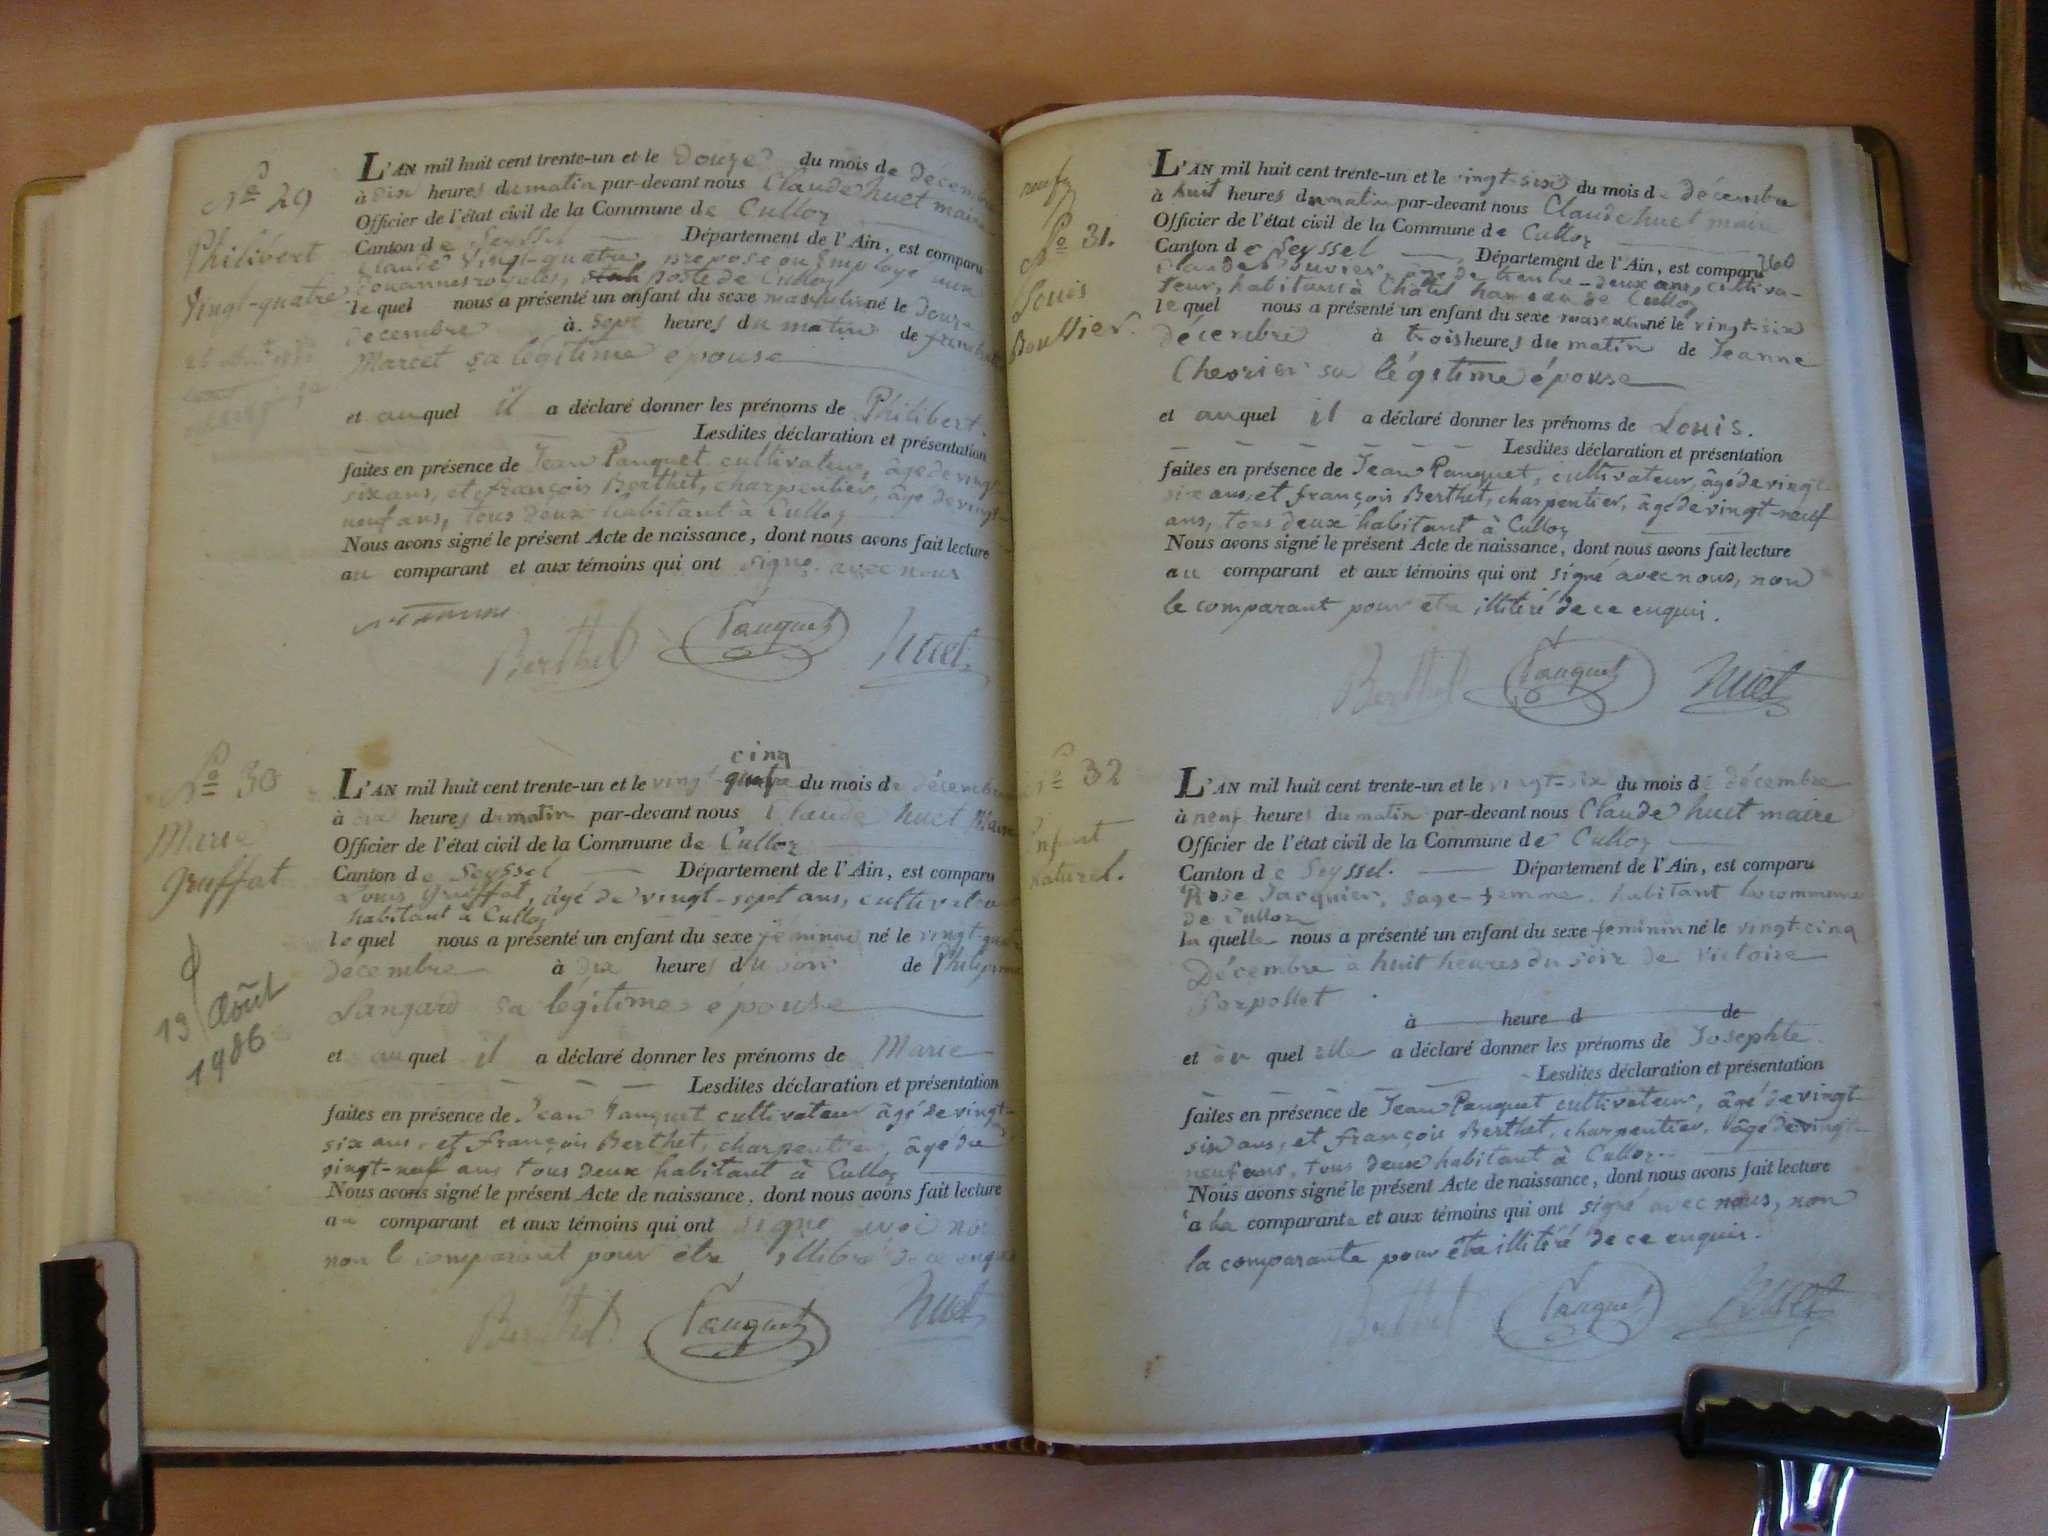 N° 29
Philibert
Vingt-quatre
L'AN mil huit cent trente-un et le Douze du mois de décembre
à dix heures du matin par-devant nous Claude huet maire
Officier de l'état civil de la Commune de Culloz
Canton de Seyssel Département de l'Ain, est comparu
Claude Vingt-quatre, préposé ou Employé aux
Douannes royales, poste de Culloz
lequel nous a présenté un enfant du sexe masculin né le Douze
decembre à Sept heures du matin de
Marcet sa légitime épouse
et auquel il a déclaré donner les prénoms de Philibert.
Lesdites déclaration et présentation
faites en présence de Jean Pauquet cultivateur, âgé de vingt-
six ans, et françois Berthet, charpentier, âgé de vingt-
neuf ans, tous deux habitant à Culloz
Nous avons signé le présent Acte de naissance, dont nous avons fait lecture
au comparant et aux témoins qui ont signé avec nous
Berthet Pauquet Huet
N° 30
Marie
Gruffat
19 Août
1986
cinq
L'AN mil huit cent trente-un et le vingt-quatre du mois de décembre
à heures du matin par-devant nous Claude huet Maire
Officier de l'état civil de la Commune de Culloz
Canton de Seyssel Département de l'Ain, est comparu
Louis Gruffat, âgé de vingt-sept ans, cultivateur
habitant à Culloz
lequel nous a présenté un enfant du sexe féminin né le vingt-quatre
decembre à dix heures du soir de
Langard sa légitime épouse
et auquel il a déclaré donner les prénoms de Marie
Lesdites déclaration et présentation
faites en présence de Jean Pauquet cultivateur âgé de vingt-
six ans, et françois Berthet, charpentier, âgé de
vingt-neuf ans tous deux habitant à Culloz
Nous avons signé le présent Acte de naissance, dont nous avons fait lecture
au comparant et aux témoins qui ont signé
non le comparant pour être illitéré de ce enquis
Berthet Pauquet Huet
N° 31.
Louis
Bouvier.
L'AN mil huit cent trente-un et le vingt-six du mois de décembre
à huit heures du matin par-devant nous Claude huet maire
Officier de l'état civil de la Commune de Culloz
Canton de Seyssel Département de l'Ain, est comparu
Claude Bouvier, âgé de trente-deux ans, cultiva-
teur, habitant à Châtel hameau de Culloz
lequel nous a présenté un enfant du sexe masculin né le vingt-six
décembre à trois heures du matin de Jeanne
Chevrier sa légitime épouse
et auquel il a déclaré donner les prénoms de Louis.
Lesdites déclaration et présentation
faites en présence de Jean Pauquet, cultivateur, âgé de vingt-
six ans, et françois Berthet, charpentier, âgé de vingt-neuf
ans, tous deux habitant à Culloz
Nous avons signé le présent Acte de naissance, dont nous avons fait lecture
au comparant et aux témoins qui ont signé avec nous, non
le comparant pour etre illitéré de ce enquis.
Berthet Pauquet Huet
N° 32
Enfant
naturel.
L'AN mil huit cent trente-un et le vingt-six du mois de décembre
à neuf heures du matin par-devant nous Claude huet maire
Officier de l'état civil de la Commune de Culloz
Canton de Seyssel. Département de l'Ain, est comparu
Rose Jacquier, sage-femme, habitant la commune
de Culloz
laquelle nous a présenté un enfant du sexe feminin né le vingt-cinq
Décembre à huit heures du soir de Victoire
Perpollet
à heure d de
et au quel elle a déclaré donner les prénoms de Josephte.
Lesdites déclaration et présentation
faites en présence de Jean Pauquet cultivateur, âgé de vingt-
six ans, et françois Berthet, charpentier, âgé de vingt-
neuf ans, tous deux habitant à Culloz.
Nous avons signé le présent Acte de naissance, dont nous avons fait lecture
a la comparante et aux témoins qui ont signé avec nous, non
la comparante pour être illitéré de ce enquis.
Berthet Pauquet Huet